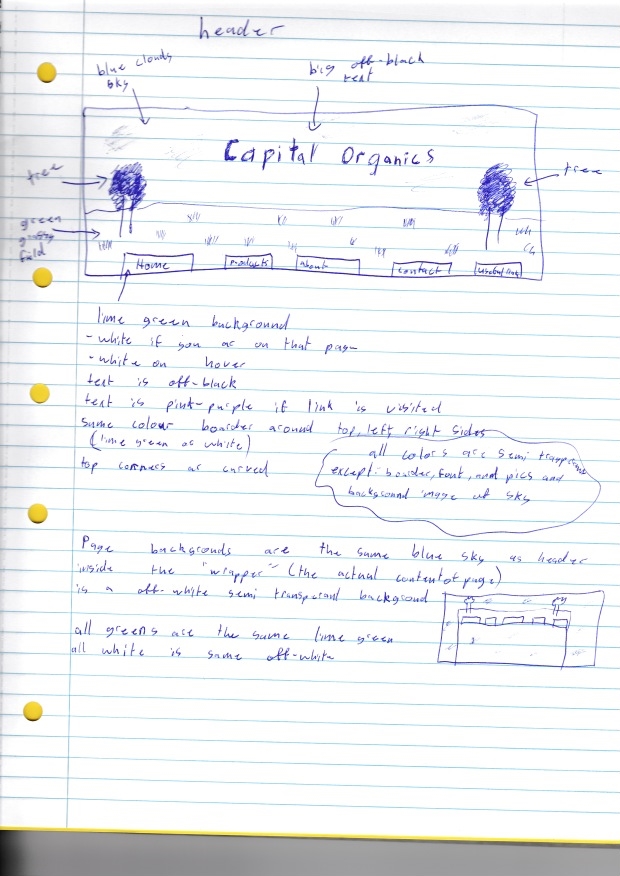 header
blue clouds
sky
big off-black
text
Capital Organics
tree
tree
green
grassy
field
Home
Products
about
contact
Useful link
lime green background
- white if you ar on that page
- white on hover
text is off-black
text is pink-purple if link is visited
same colour boarder around top, left, right sides
(lime green or white)
top corners ar curved
all colors are semi
except: boarder, font, and pics and
background image of sky
Page backgrounds are the same blue sky as header
inside the "wrapper" (the actual content of page)
is a off-white semi transparant background
all greens are the same lime green
all white is same off-white